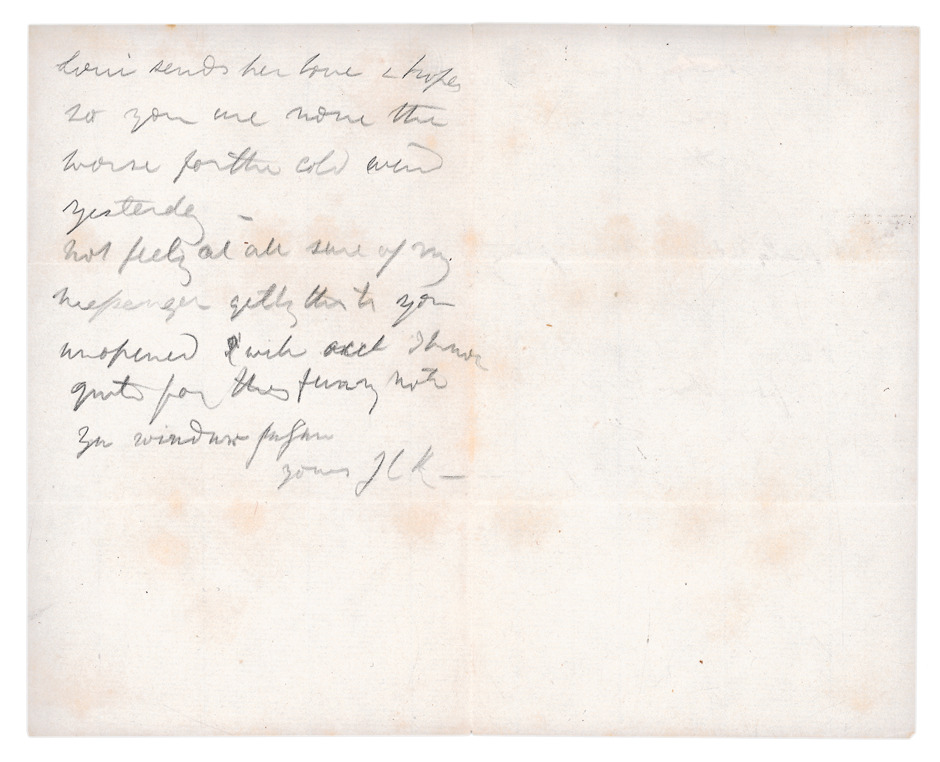 sends her love & hopes
so you are none the
worse for the cold wind
yesterday —
not feeling at all sure of my
messenger getting this to you
unopened I will I have
for this funny note
window
yours JCK —